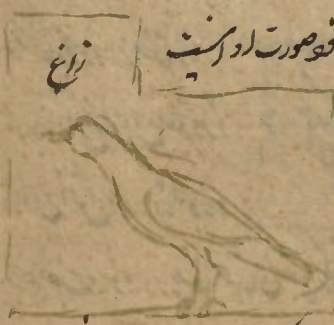 و صورت او اینست
زاغ